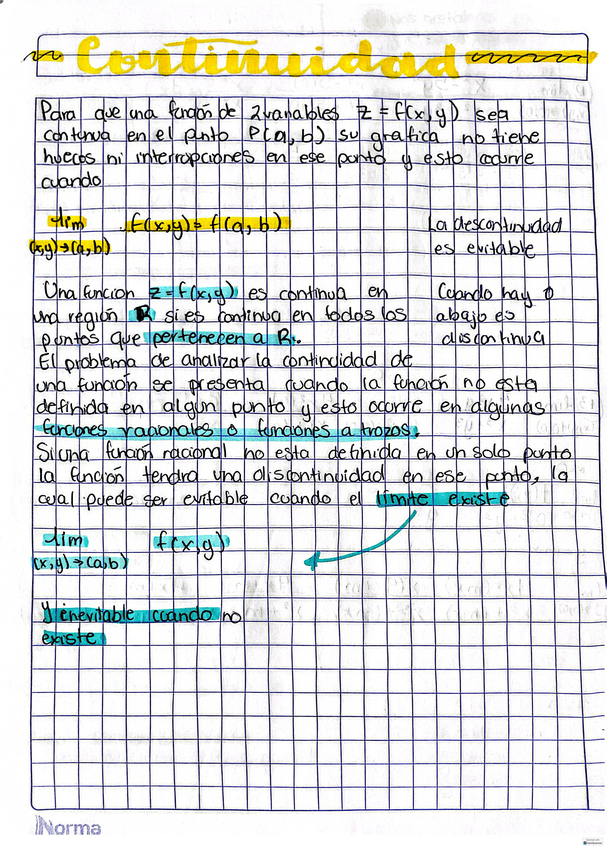 Continuidad
Para que una función de 2 variables z = f(x,y) sea
continua en el punto P(a,b) su grafica no tiene
huecos ni interrupciones en ese punto y esto ocurre
cuando
lim f(x,y) = f(a,b)
(x,y)→(a,b)
La discontinuidad
es evitable
Una funcion z=f(x,y) es continua en
una región R si es continua en todos los
puntos que pertenecen a R.
Cuando hay 0
abajo es
discontinua
El problema de analizar la continuidad de
una función se presenta cuando la función no esta
definida en algun punto y esto ocurre en algunas
funciones racionales o funciones a trozos.
Si una función racional no esta definida en un solo punto
la función tendra una discontinuidad en ese punto, la
cual puede ser evitable cuando el limite existe
lim f(x,y)
(x,y)→(a,b)
y inevitable cuando no
existe
Norma